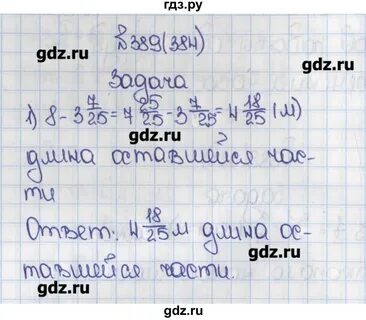 гдз.ру
№389(384)
gdz.ru
gdz.ru
Задача
1) 8 - 3 7/25 = 7 25/25 - 3 7/25 = 4 18/25 (м)
длина оставшейся час-
gdz.ru
ти
Ответ: 4 18/25 м длина ос-
gdz.ru
gdz.ru
тавшейся части.
gdz.ru
gdz.ru